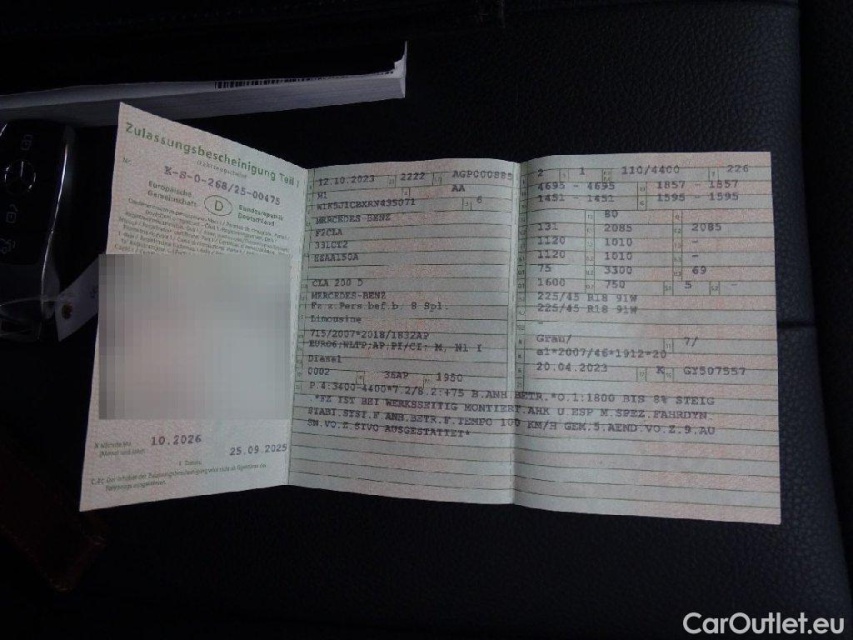 Zulassungsbescheinigung Teil I
Nr.
K-S-0-268/25-00475
Europäische
Gemeinschaft
D
Bundesrepublik
Deutschland
10.2026
25.09.2025
12.10.2023 2222 AGP000885
M1 AA
W1K5J1CBXRN435071 6
MERCEDES-BENZ
F2CLA
33LCC2
CLA 200 D
MERCEDES-BENZ
Fz.z.Pers.bef.b. 8 Spl.
Limousine
715/2007*2018/1832AP
EURO6;WLTP;AP;PI/CI; M, N1 I
Diesel
0002 36AP 1950
2 1 110/4400 226
4695 - 4695 1857 - 1857
1451 - 1451 1595 - 1595
80
131 2085 2085
1120 1010 -
1120 1010 -
75 3300 69
1600 750 5 -
225/45 R18 91W
225/45 R18 91W
Grau/ 7/
e1*2007/46*1912*20
20.04.2023 K GY507557
P.4:3400-4400*7.2/8.2:+75 B.ANH.BETR.*O.1:1800 BIS 8% STEIG
.*FZ IST BEI WERKSSEITIG MONTIERT.AHK U.ESP M.SPEZ.FAHRDYN
STABI.SYST.F ANH.BETR.F.TEMPO 100 KM/H GEM.5.AEND.VO.Z.9.AU
SN.VO.Z.STVO AUSGESTATTET*
CarOutlet.eu